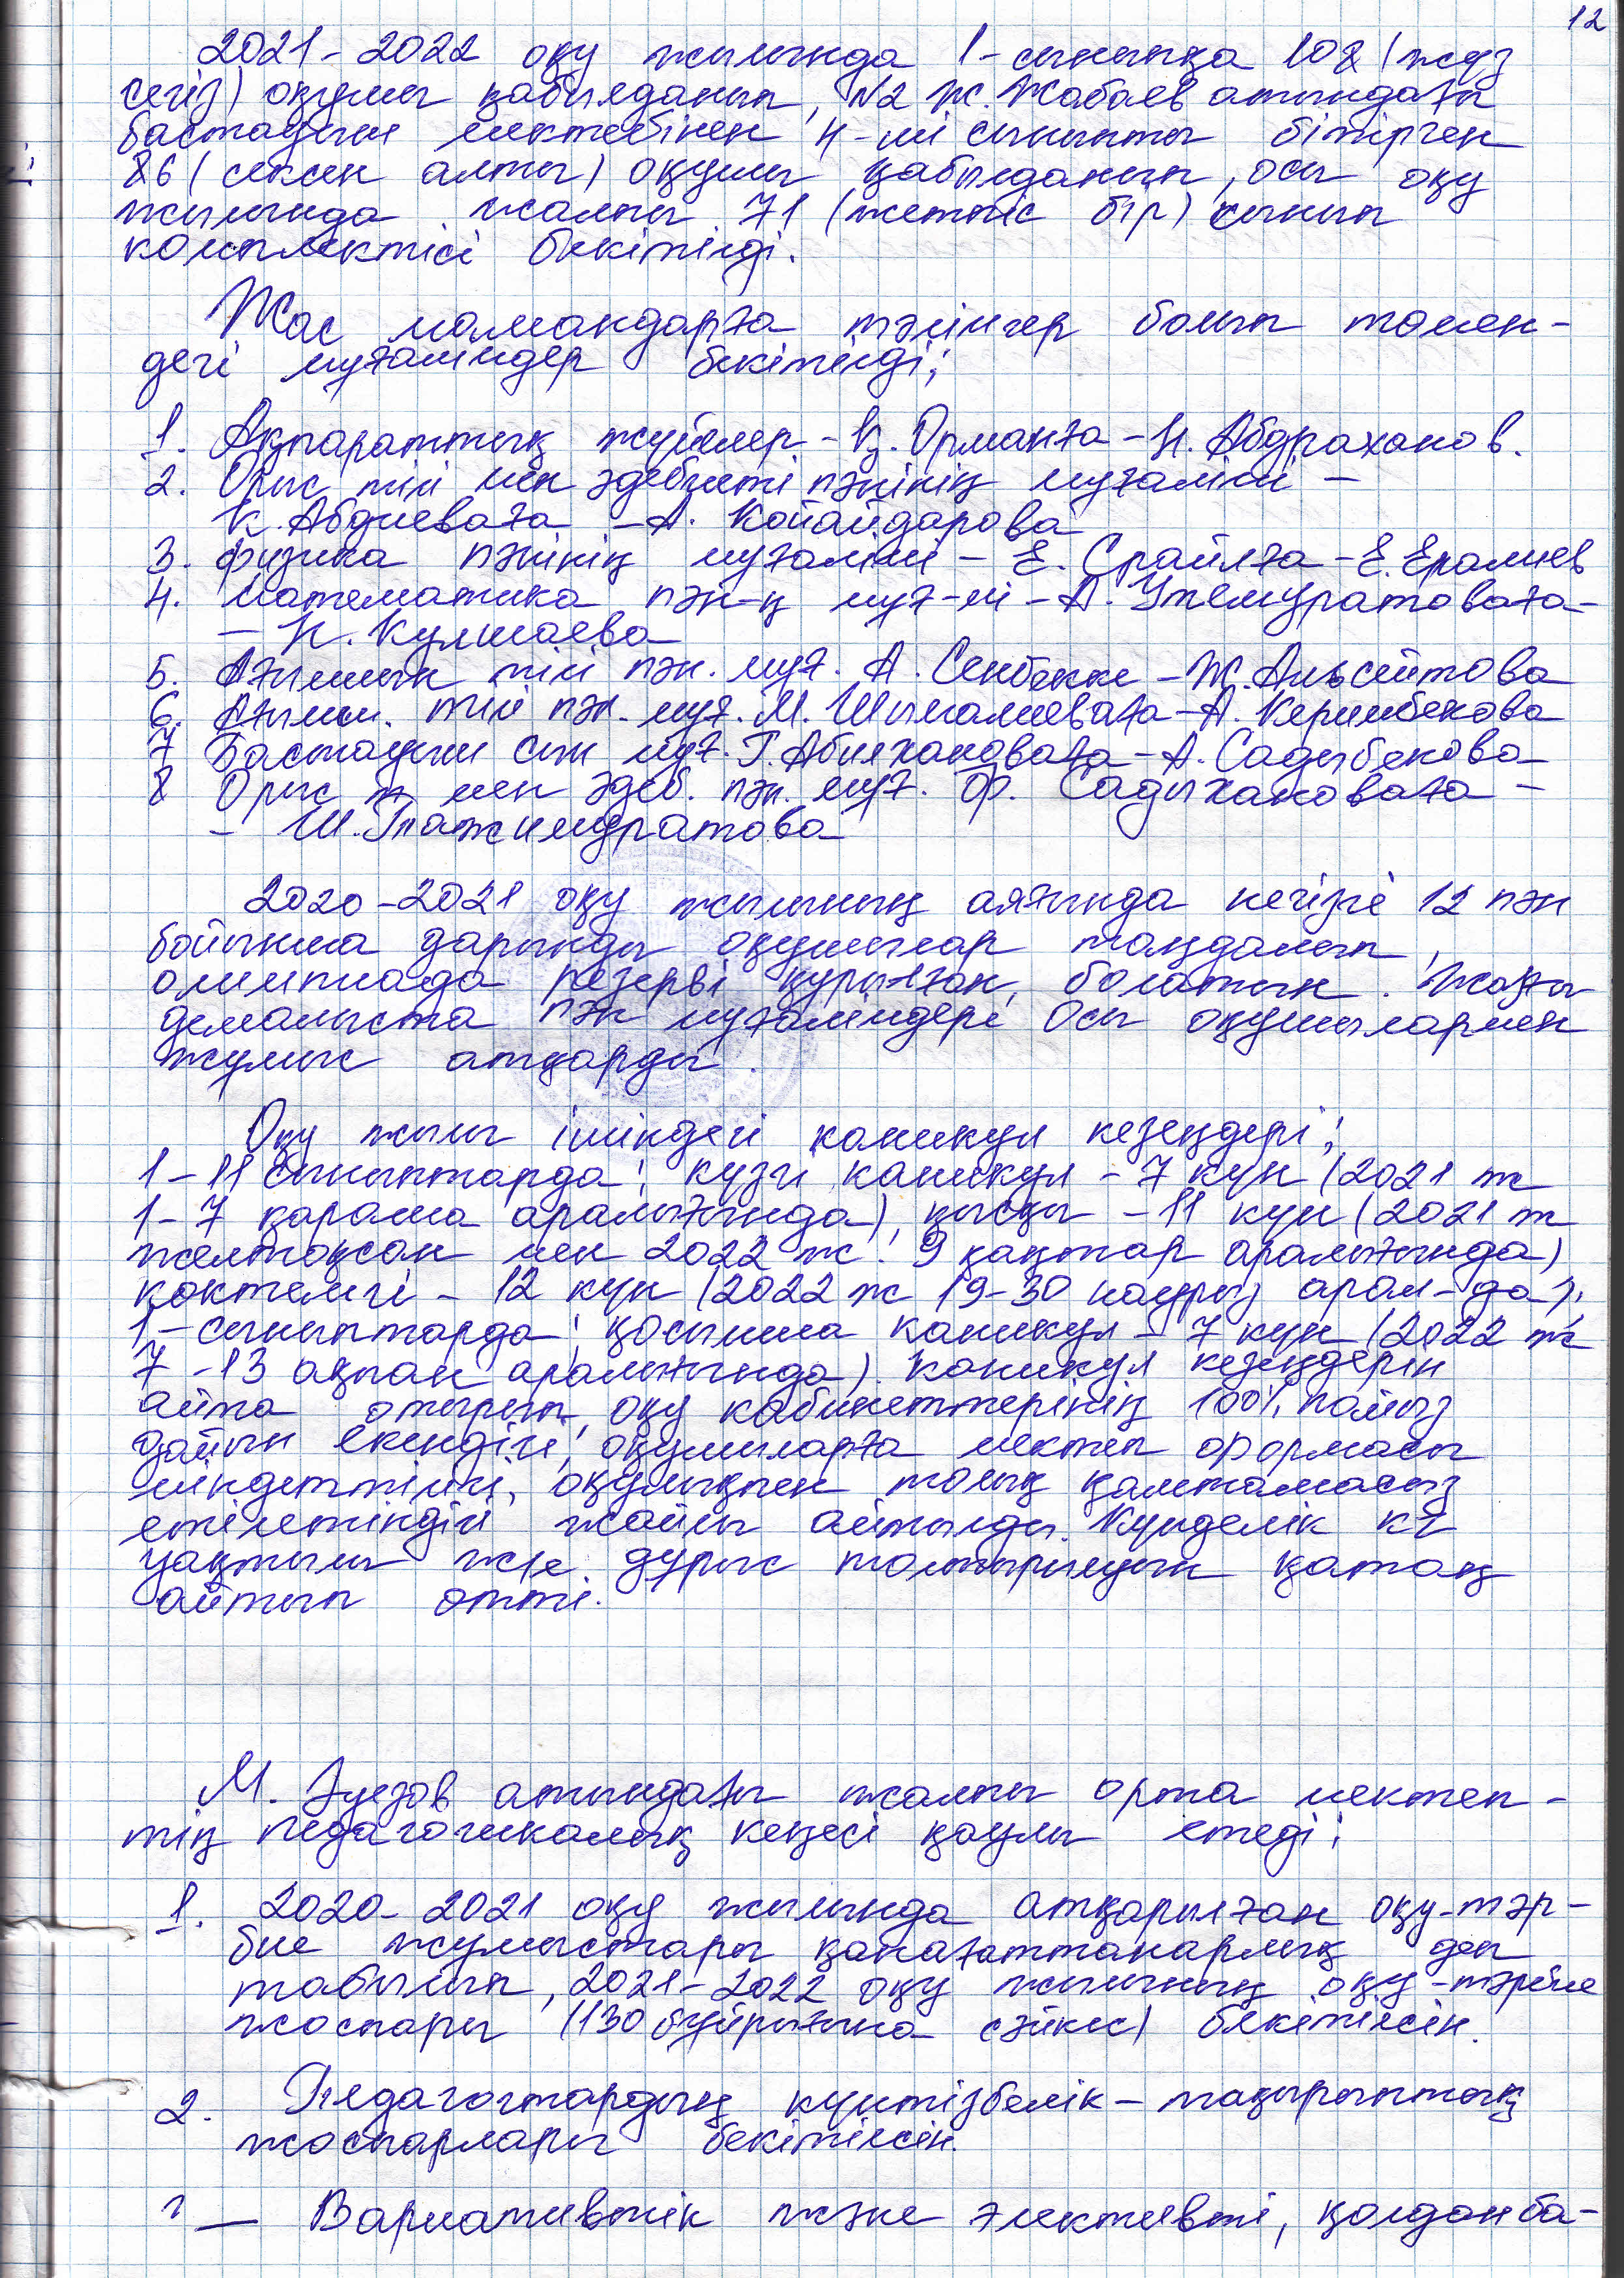 12
2021-2022 оқу жылында 1-сыныпқа 108 (жүз
сегіз) оқушы қабылданып, №2 Ж.Жабаев атындағы
бастауыш мектебінен 4-ші сыныпты бітірген
86 (сексен алты) оқушы қабылданып, осы оқу
жылында жалпы 71 (жетпіс бір) сынып
комплектісі бекітілді.
Жас мамандарға тәлімгер болып төмен-
дегі мұғалімдер бекітілді;
1. Ақпараттық жүйелер - Қ.Орманға - Н.Абдраханов.
2. Орыс тілі мен әдебиеті пәнінің мұғалімі -
К.Абдиеваға - А. Койайдарова
3. физика пәнінің мұғалімі - Е. Срайлға - Е.Ералиев
4. математика пән-ң мұғ-мі - А.Утемуратоваға-
- Н.Кулшаева
5. Ағылшын тілі пән. мұғ. А. Сенбекке - Ж.Альсейтова
6. Ағылш. тілі пән. мұғ. М.Шымалиеваға - А.Керимбекова
7 Бастауыш сын мұғ. Г.Абилхановаға - А.Садыбекова
8 Орыс т мен әдеб. пән. мұғ. Ф. Садыхановаға -
- Ш.Тажимуратова
2020-2021 оқу жылының аяғында негізгі 12 пән
бойынша дарынды оқушылар таңдалып,
олимпиада резерві құрылған болатын. Жазғы
демалыста пән мұғалімдері осы оқушылармен
жұмыс атқарды.
Оқу жылы ішіндегі каникул кезеңдері;
1-11 сыныптарда: күзгі каникул - 7 күн (2021 ж
1-7 қараша аралығында), қысқы - 11 күн (2021 ж
желтоқсан мен 2022 ж. 9 қаңтар аралығында)
көктемгі - 12 күн (2022 ж 19-30 наурыз арал-да),
1-сыныптарда: қосымша каникул - 7 күн (2022 ж
7-13 ақпан аралығында). Каникул кезеңдерін
айта отырып, оқу кабинеттерінің 100% пайыз
дайын екендігі, оқушыларға мектеп формасы
міндеттілігі, оқулықпен толық қамтамасыз
етілетіндігі жайлы айтылды. Күнделік кz
уақтылы және дұрыс толтырылуын қатаң
айтып өтті.
М. Әуезов атындағы жалпы орта мектеп-
тің педагогикалық кеңесі қаулы етеді;
1. 2020-2021 оқу жылында атқарылған оқу-тәр-
бие жұмыстары қанағаттанарлық деп
табылып, 2021-2022 оқу жылының оқу-тәрбие
жоспары (130 бұйрығына сәйкес) бекітілсін.
2. Педагогтардың күнтізбелік-тақырыптық
жоспарлары бекітілсін.
- Вариативтік және элективті, қолданба-